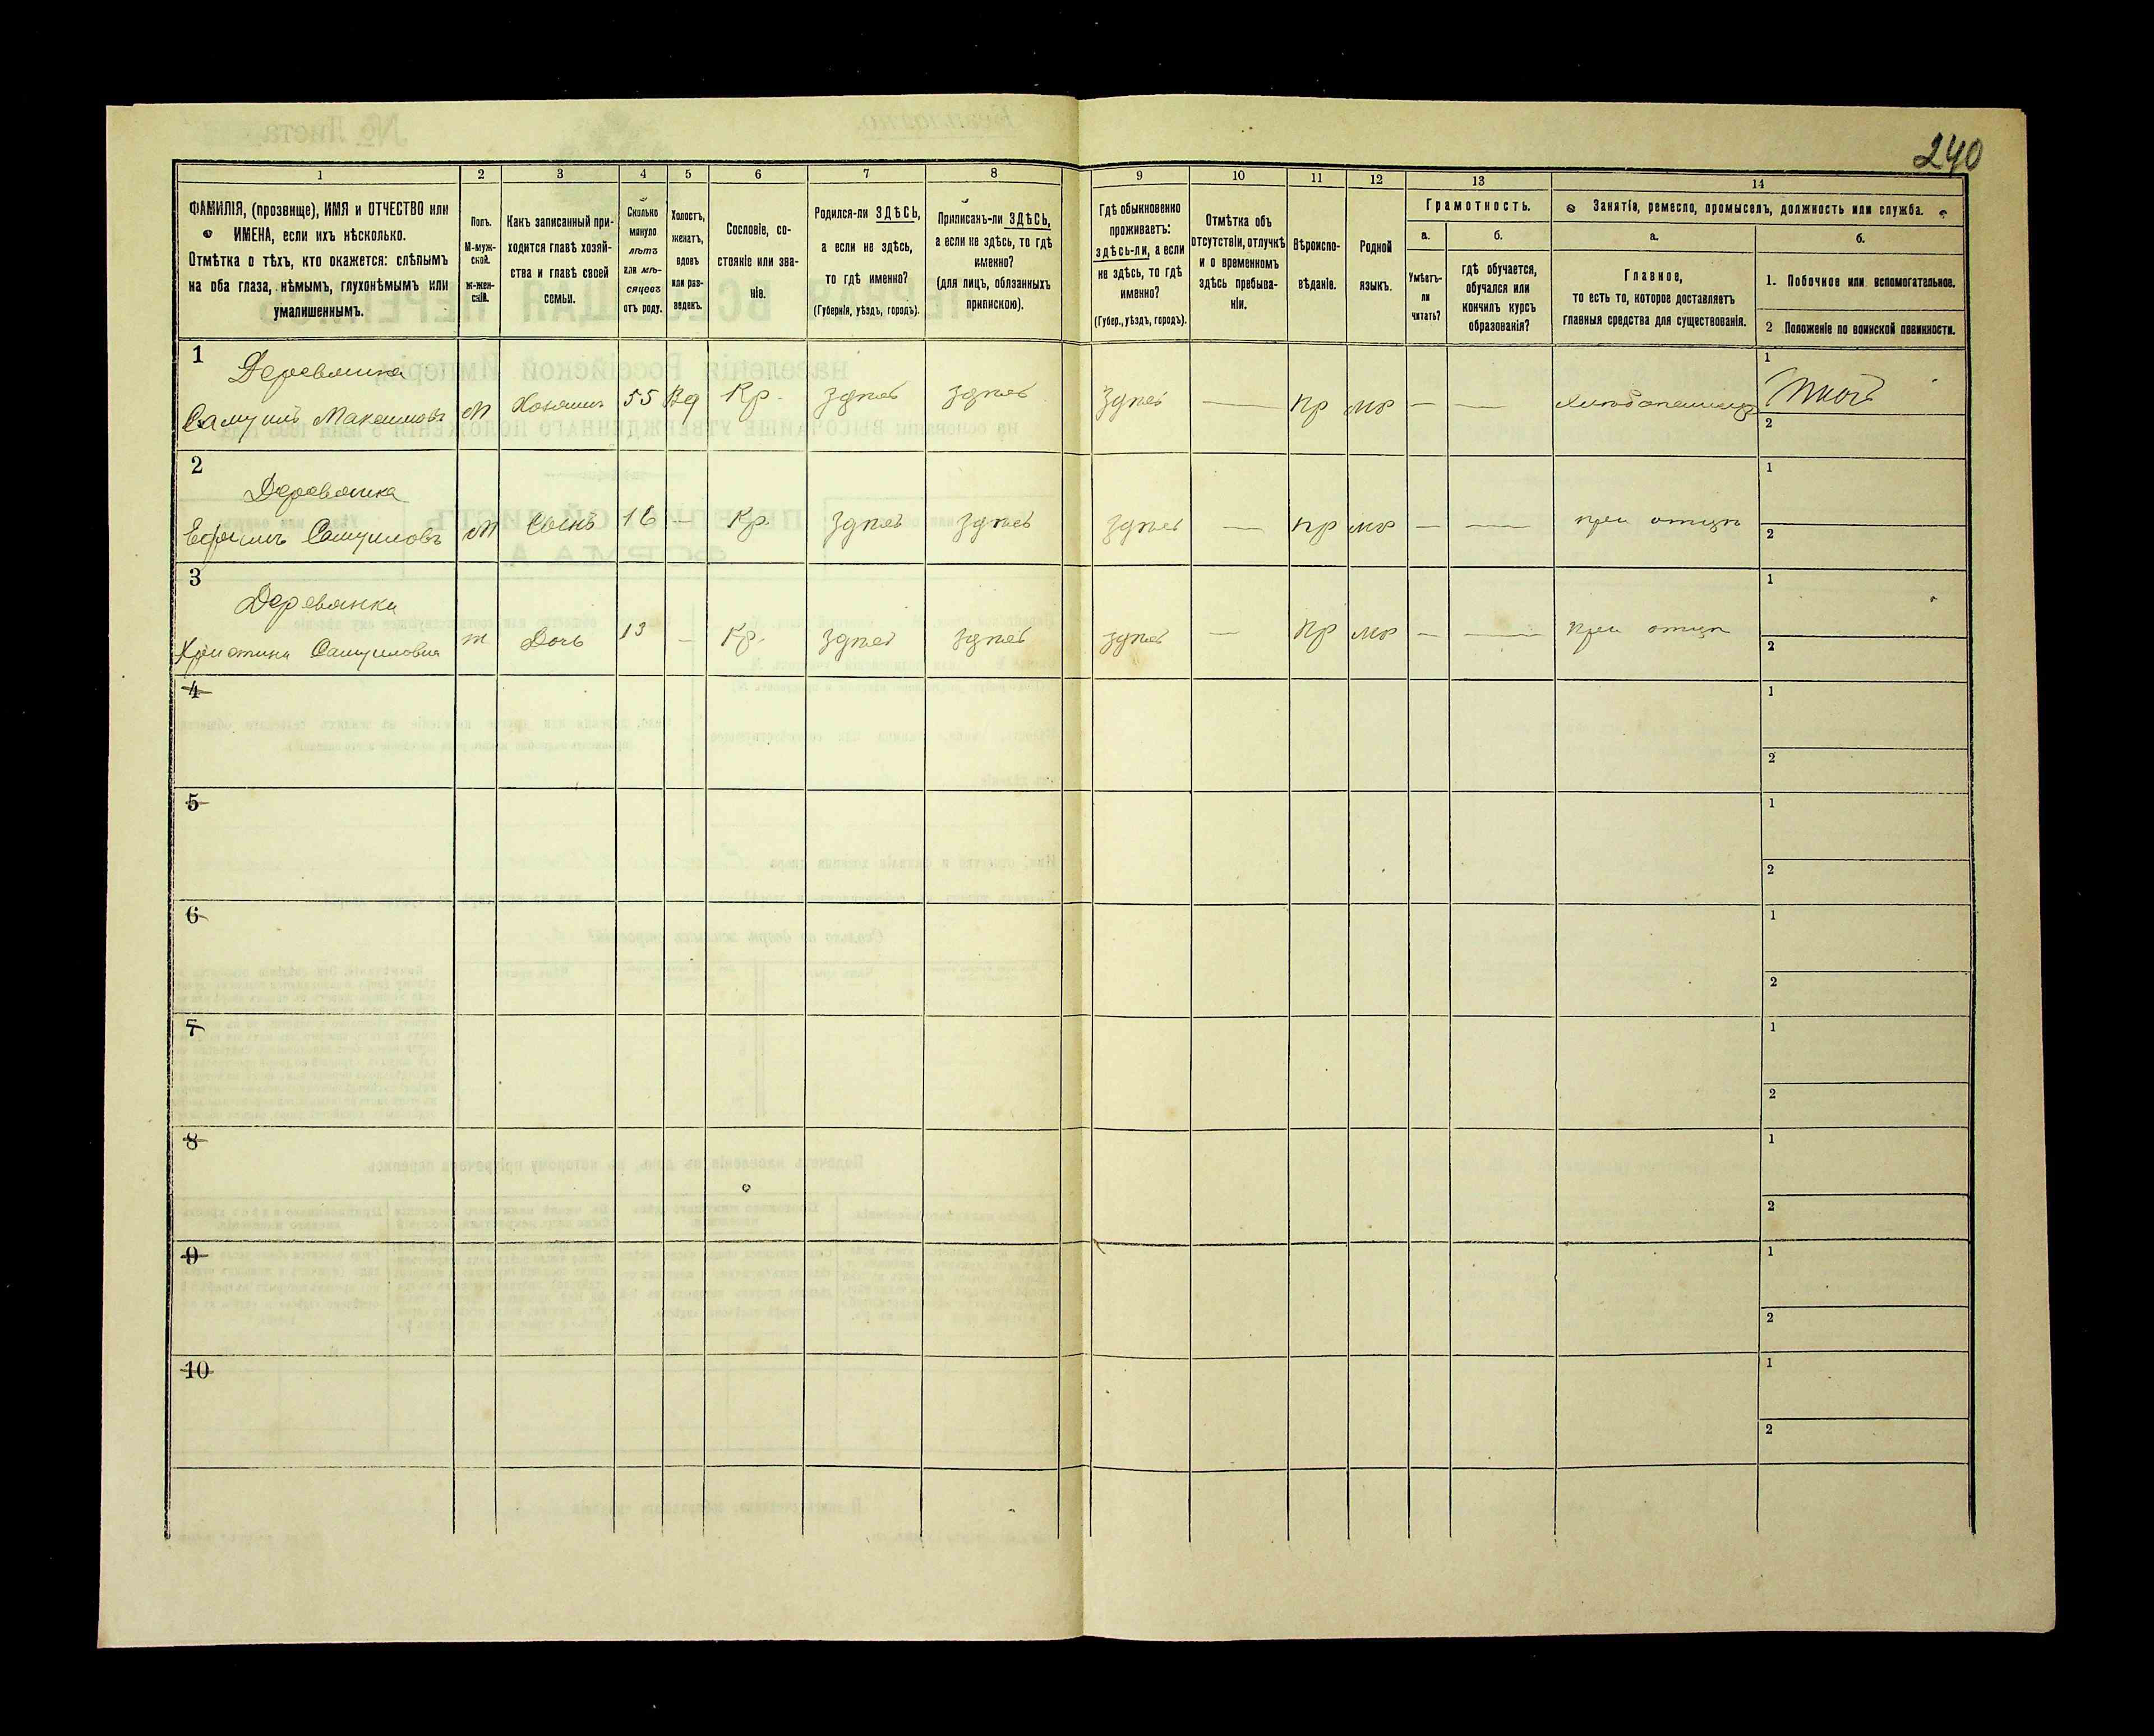 240
1 2 3 4 5 6 7 8 9 10 11 12 13 14
ФАМИЛІЯ, (прозвище), ИМЯ и ОТЧЕСТВО или
ИМЕНА, если ихъ нѣсколько.
Отмѣтка о тѣхъ, кто окажется: слѣпымъ
на оба глаза, нѣмымъ, глухонѣмымъ или
умалишеннымъ.
Полъ.
М-муж-
ской.
Ж-жен-
скій.
Какъ записанный при-
ходится главѣ хозяй-
ства и главѣ своей
семьи.
Сколько
минуло
лѣтъ
или мѣ-
сяцевъ
отъ роду.
Холостъ,
женатъ,
вдовъ
или раз-
веденъ.
Сословіе, со-
стояніе или зва-
ніе.
Родился-ли ЗДѢСЬ,
а если не здѣсь,
то гдѣ именно?
(Губернія, уѣздъ, городъ).
Приписанъ-ли ЗДѢСЬ,
а если не здѣсь, то гдѣ
именно?
(для лицъ, обязанныхъ
припискою).
Гдѣ обыкновенно
проживаетъ:
здѣсь-ли, а если
не здѣсь, то гдѣ
именно?
(Губер., уѣздъ, городъ).
Отмѣтка объ
отсутствіи, отлучкѣ
и о временномъ
здѣсь пребыва-
ніи.
Вѣроиспо-
вѣданіе.
Родной
языкъ.
Грамотность.
а.
Умѣетъ-
ли
читать?
б.
гдѣ обучается,
обучался или
кончилъ курсъ
образованія?
Занятіе, ремесло, промыселъ, должность или служба.
а.
Главное,
то есть то, которое доставляетъ
главныя средства для существованія.
б.
1. Побочное или вспомогательное.
2 Положеніе по воинской повинности.
1
Деревянка
Самуилъ Максимовъ М Хозяинъ 55 Вд Кр. здѣсь здѣсь здѣсь — Пр мр — — Хлѣбопашецъ
1
2
2
Деревянка
Ефримъ Самуиловъ М Сынъ 16 — Кр. здѣсь здѣсь здѣсь — Пр мр — — при отцѣ
1
2
3
Деревянка
Христина Самуиловна ж Дочь 13 — Кр. здѣсь здѣсь здѣсь — Пр мр — — при отцѣ
1
2
4
1
2
5
1
2
6
1
2
7
1
2
8
1
2
9
1
2
10
1
2